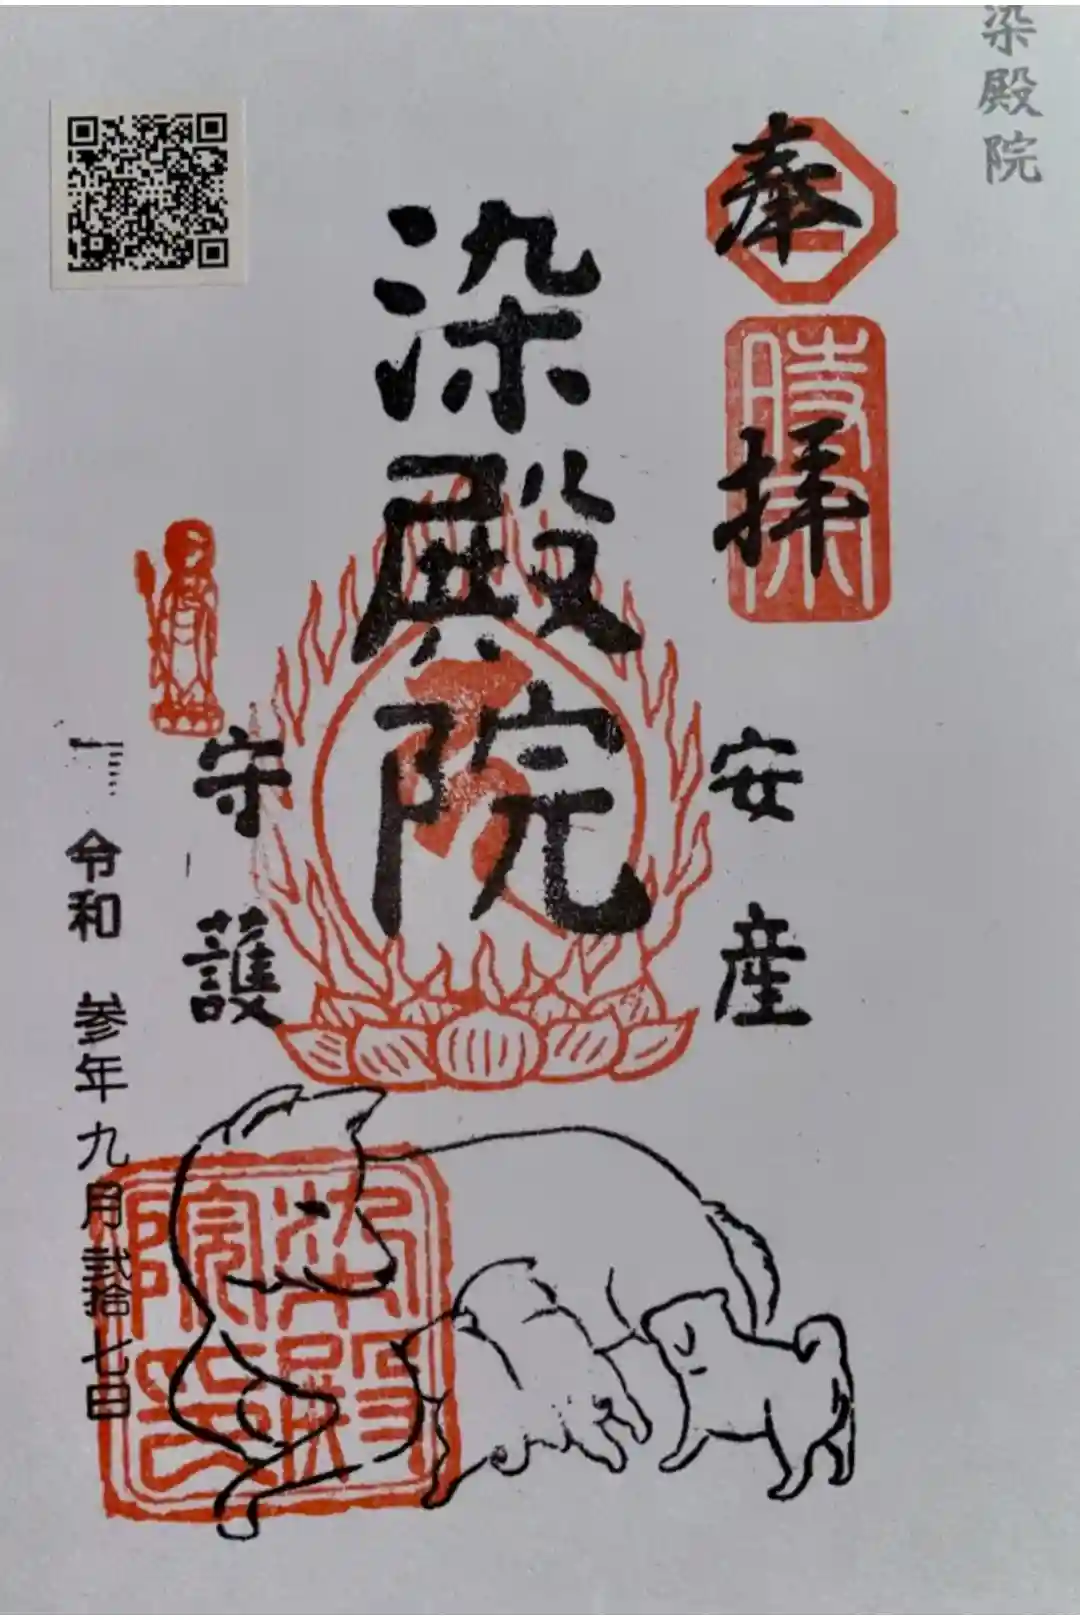 染殿院
奉拝
時宗
安産
染殿院
守護
令和 参年 九月 弐拾七日
染殿院印